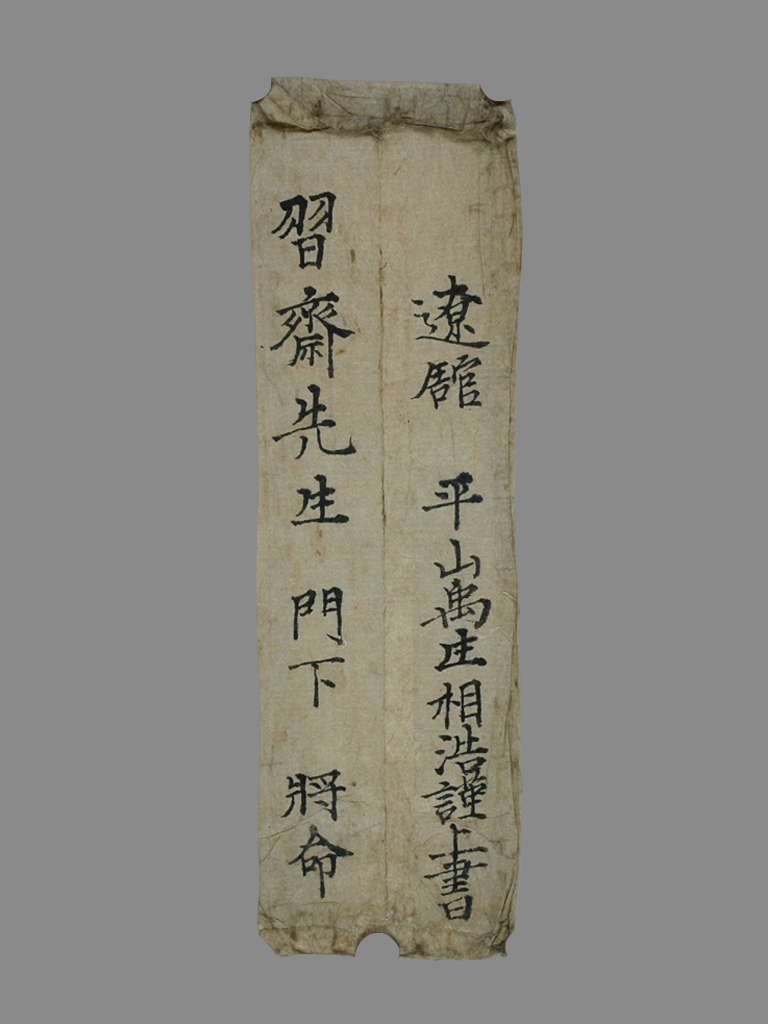 遼館 平山禹庄相浩謹上書
習齋先生 門下 將命